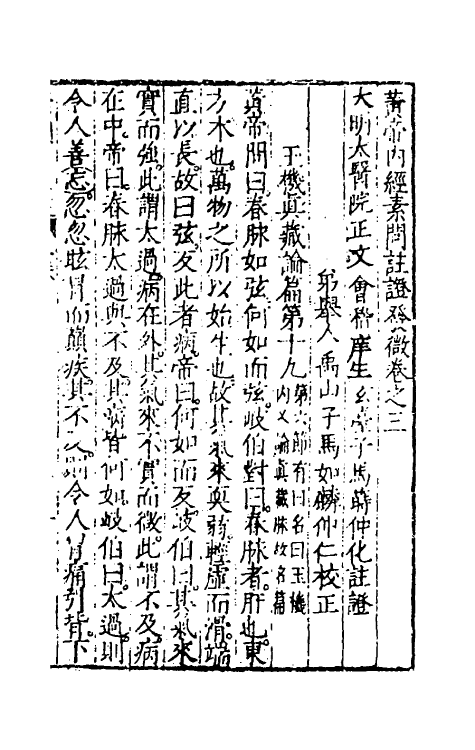 黃帝內經素問註證發微卷之三
大明太醫院正文會稽庠生玄臺子馬蒔仲化註證
弟舉人禹山子馬如麟仲仁校正
玉機眞藏論篇第十九 第六節有曰名曰玉機內又論眞藏脉故名篇
黃帝問曰春脉如弦何如而弦岐伯對曰春脉者肝也東
方木也萬物之所以始生也故其氣來耎弱輕虛而滑端
直以長故曰弦反此者病帝曰何如而反岐伯曰其氣來
實而強此謂太過病在外其氣來不實而微此謂不及病
在中帝曰春脉太過與不及其病皆何如岐伯曰太過則
令人善忘忽忽眩冒而巔疾其不及則令人胷痛引背下